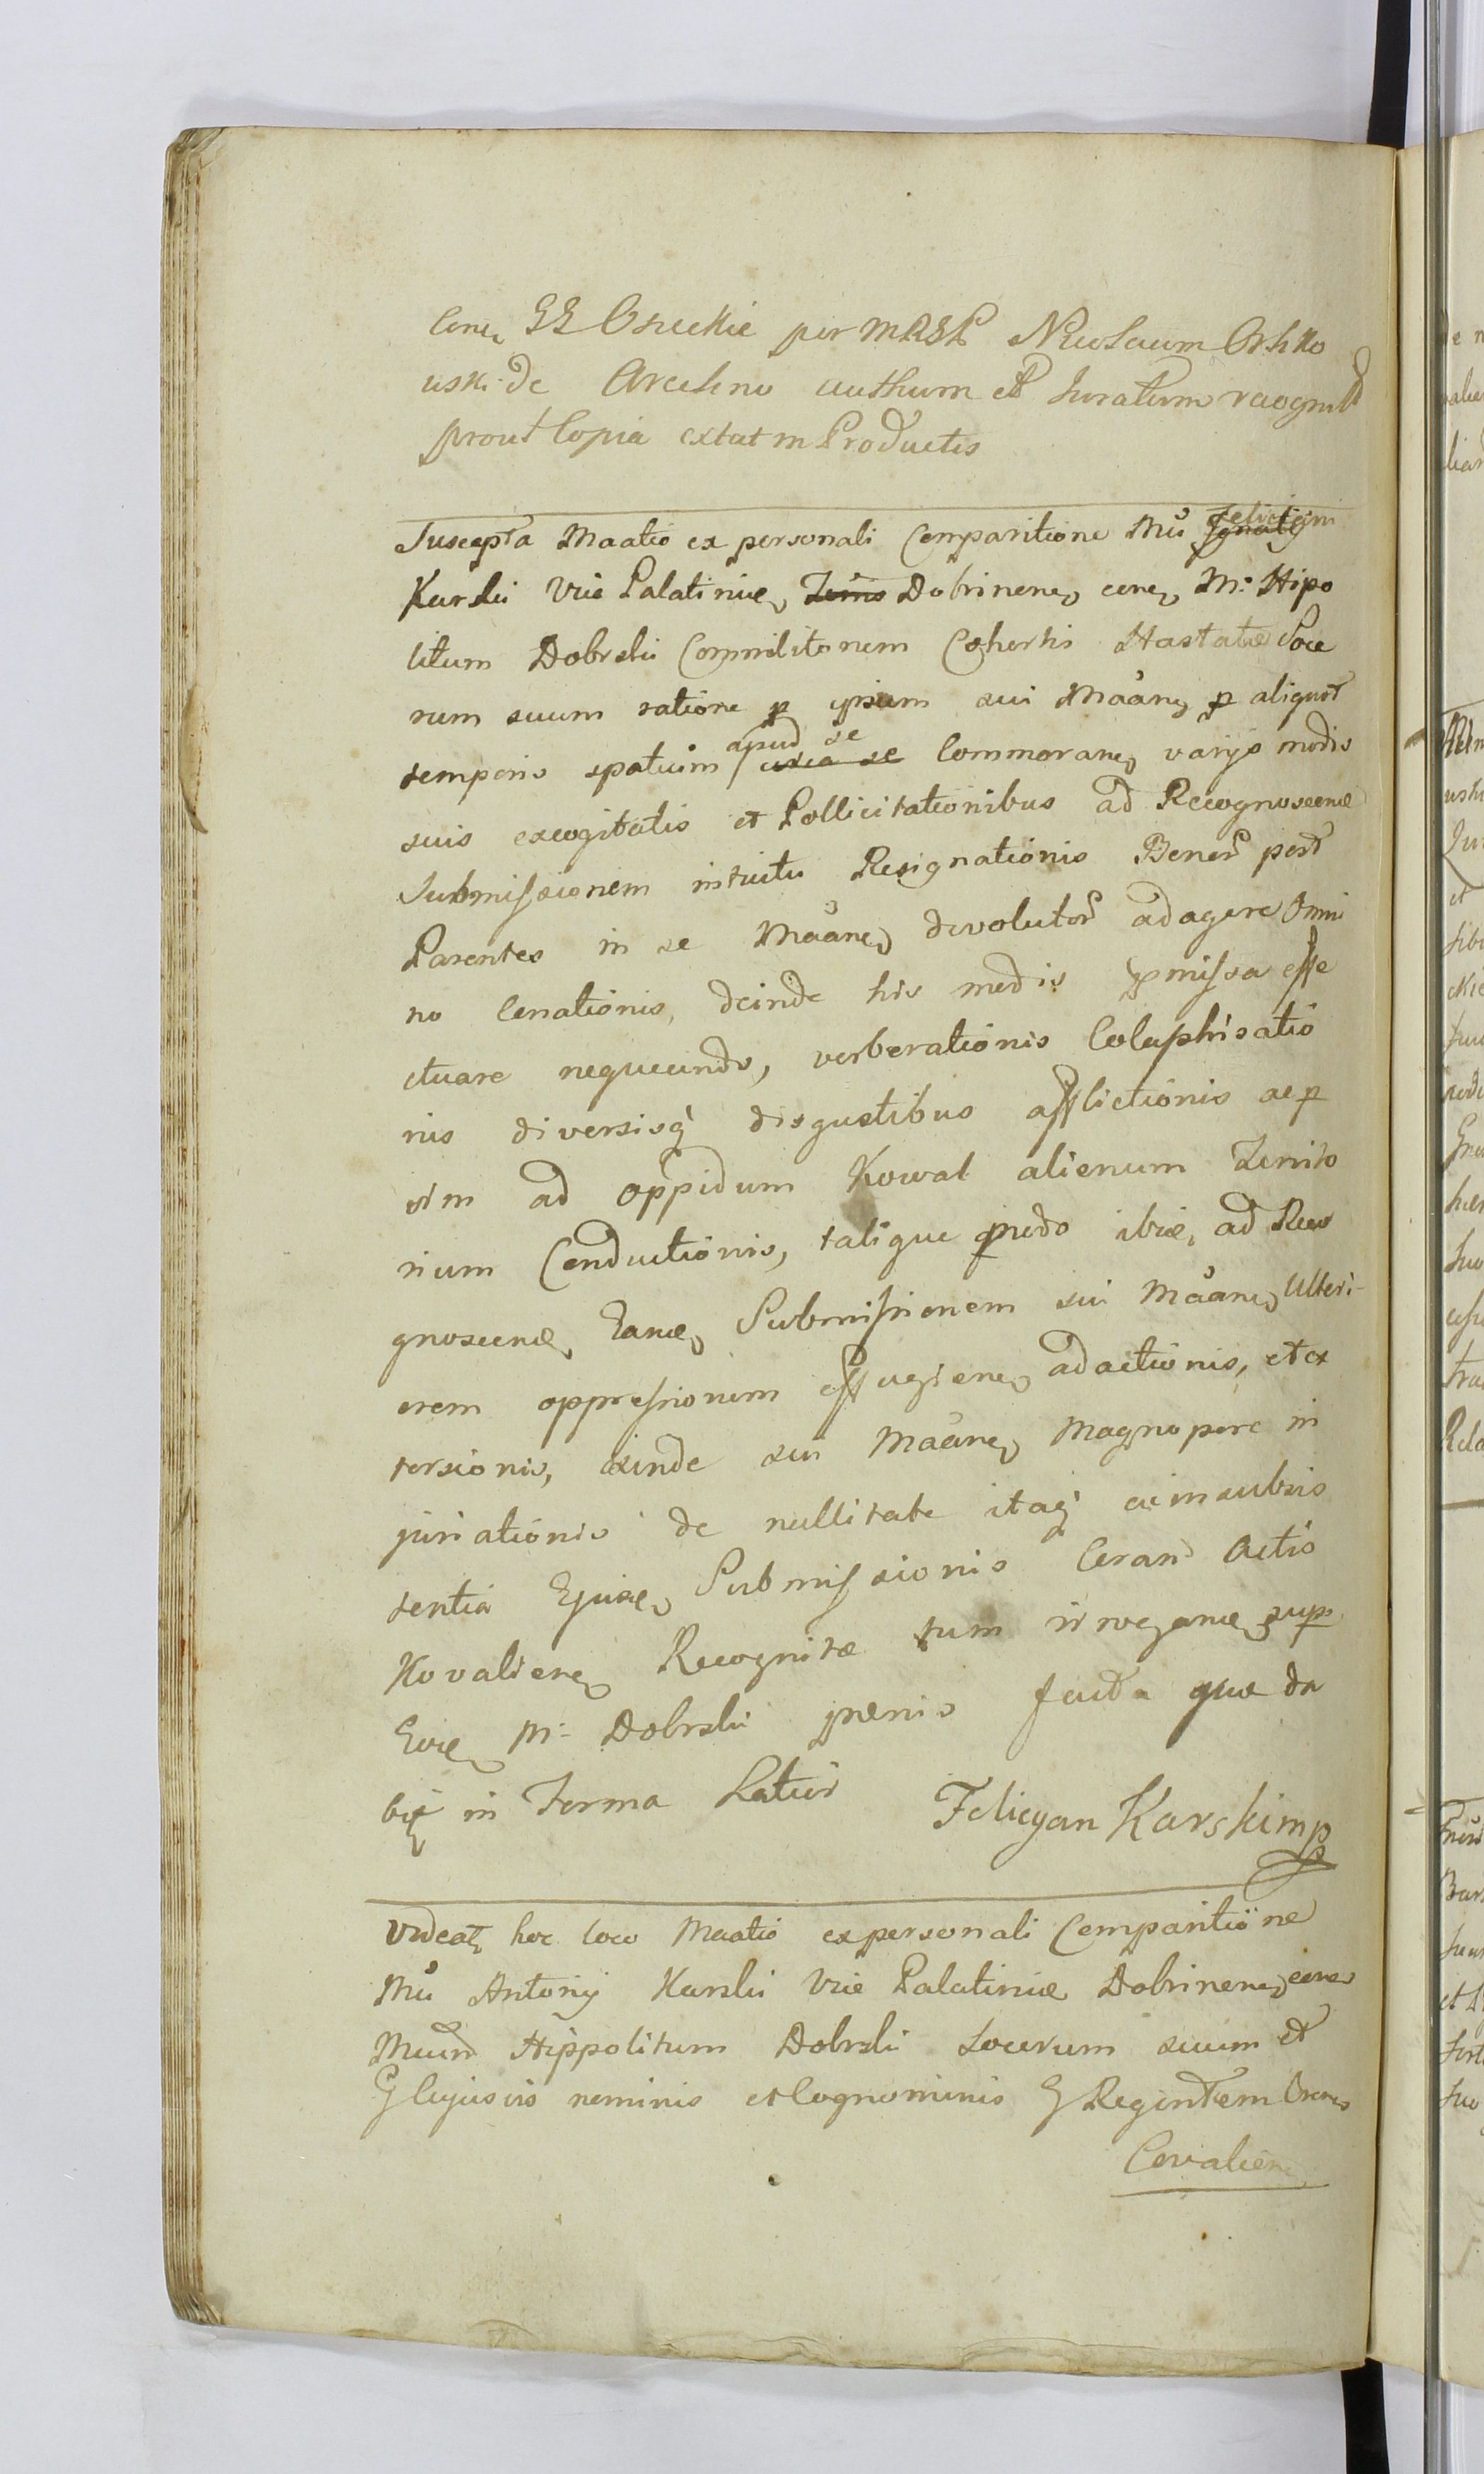 Conc, GG Osieckie per MRSP Nicolaum Orłko
uski de Arcelino authum et Juratum recognit
prout Copia extat in Productis
Suscepta Maatio ex personali Comparitione Mci Ignatij Feliciani
Karski Vice Palatiniae, Terris Dobrinens, cone, M: Hipo
litum Dobrski Commilitonem Cohortis Hastatae Soce
rum suum ratione p ipsum sui Maanc, p aliquot
temporis spatium circa se apud se Commoranc, varijs modis
suis excogitatis et Pollicitationibus ad Recognoscenae
Submissionem intuitu Resignationis Bonor post
Parentes in se Maanc, devolutor adagere omni
no Conationis, deinde his modis pmissa effe
ctuare nequeundo, verberationis Colaphisatio
nis diversisq disgustibus afflictionis ac p
vim ad oppidum Kowal alienum Territo
rium Conductionis, talique modo ibid, ad Reco
gnoscend, Eand, Submissionem sui Maanc, Ulteri-
orem oppressionem effugienc, adactionis, et ex
torsionis, exinde sui Maanc, Magnopere in
juriationis de nullitate itaq ac insubsis
tentia Ejusd, Submissionis Coram Actis
Kovaliens Recognitae tum irrogand, sup
Eund, M: Dobrski paenis facta quae da
bit in Forma Latior
Felicyan Karski mp
Videat, hoc loco Maatio ex personali Comparitione
Mci Antonij Karski Vice Palatiniae Dobrinens, cone
Mcum Hippolitum Dobrski Socerum suum et
G Cujusvis nominis et Cognominis G Regentem Cracens
Covaliens